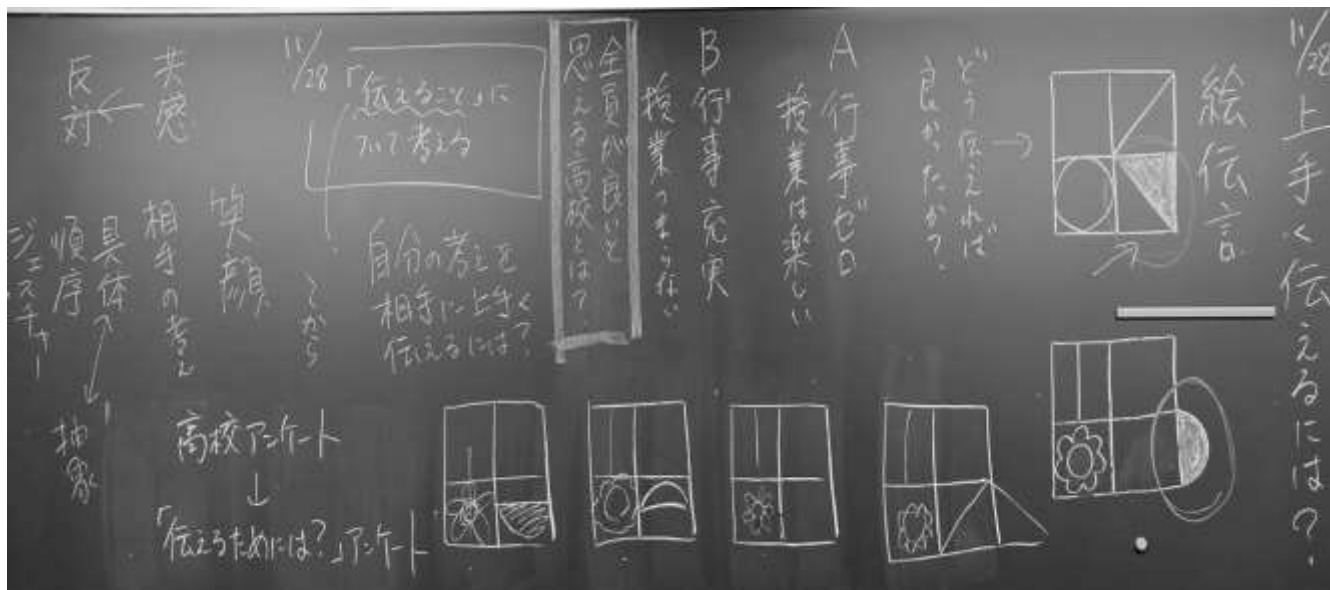 11/28 上手く伝えるには?
絵伝言
どう伝えれば
良かったか?
A 行事ゼロ
授業は楽しい
B 行事充実
授業つまらない
全員が良いと
思える高校とは?
11/28
「伝えること」に
ついて考える
自分の考えを
相手に上手く
伝えるには?
〜から
笑顔
相手の考え
共感
反対
具体
抽象
順序
ジェスチャー
高校アンケート
↓
「伝えるためには?」アンケート